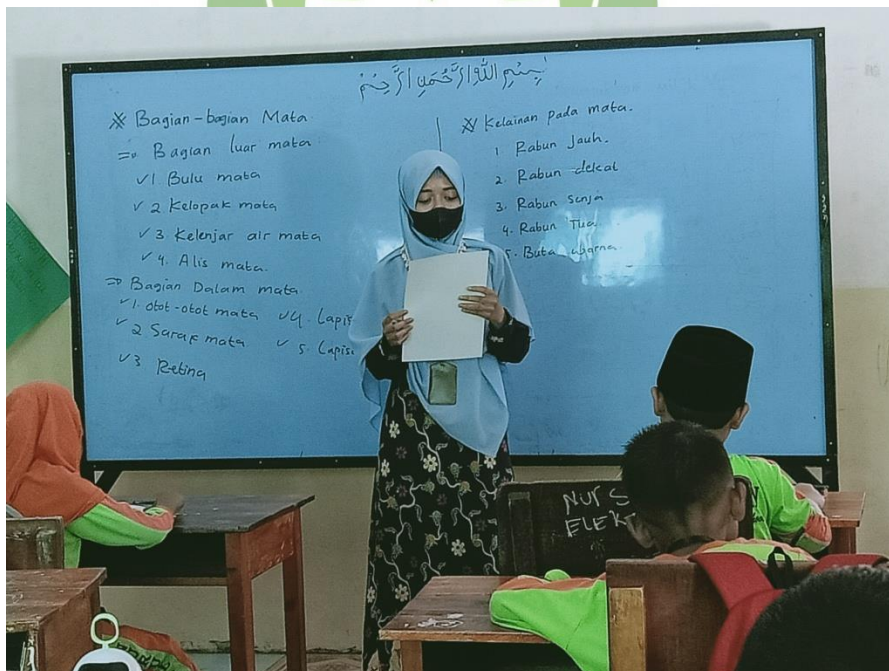 بِسْمِ اللهِ الرَّحْمَنِ الرَّحِيْمِ
※ Bagian-bagian Mata
=> Bagian luar mata
✓1. Bulu mata
✓ 2. Kelopak mata
✓ 3. Kelenjar air mata
✓ 4. Alis mata.
=> Bagian Dalam mata.
✓1. otot-otot mata ✓4. Lapis
✓ 2 Saraf mata ✓ 5. Lapis
✓3 Retina
※ Kelainan pada mata.
1 Rabun Jauh.
2. Rabun dekat
3. Rabun senja
4. Rabun Tua
5. Buta warna
NUR S
ELEK